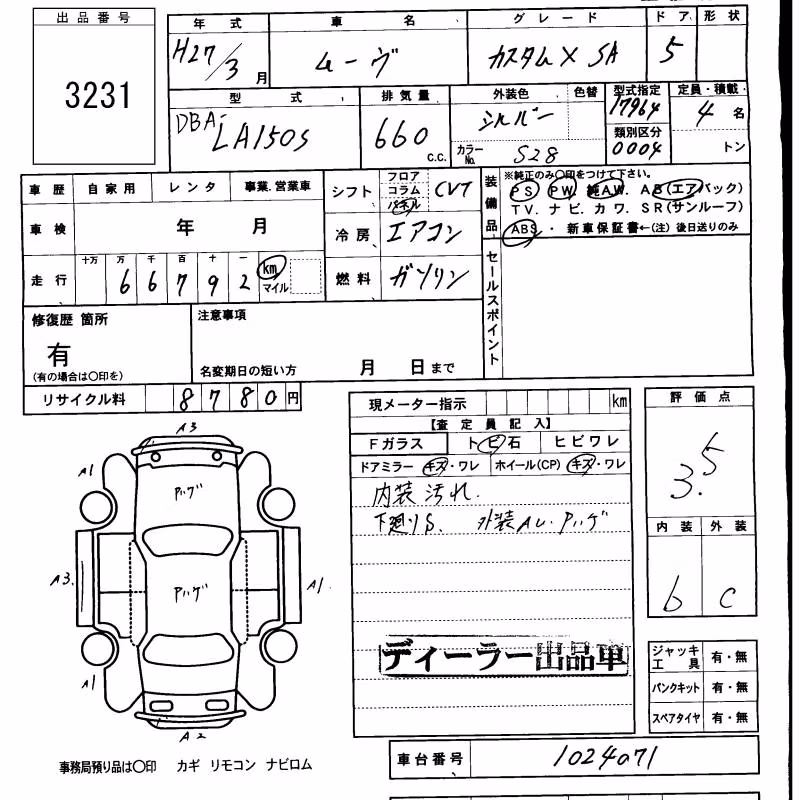 出品番号
3231
年式 車名 グレード ドア 形状
H27/3月 ムーヴ カスタムX SA 5
型式 排気量 外装色 色替 型式指定 定員・積載
DBA-LA150S 660 C.C. シルバー 17964 4名
カラーNo. S28 類別区分 0004 トン
車歴 自家用 レンタ 事業.営業車
シフト フロア コラム パネル CVT
装備品
※純正のみ〇印をつけて下さい。
PS PW 純AW. AB(エアバック)
TV. ナビ. カワ. SR(サンルーフ)
ABS・ 新車保証書←(注)後日送りのみ
車検 年 月
冷房 エアコン
走行 十万 万 千 百 十 一
66792 km マイル
燃料 ガソリン
セールスポイント
修復歴 箇所
有
(有の場合は〇印を)
注意事項
名変期日の短い方 月 日まで
リサイクル料 8780円
現メーター指示 km
【査定員記入】
Fガラス トビ石 ヒビワレ
ドアミラー キズ・ワレ ホイール(CP) キズ・ワレ
内装汚れ.
下廻りS. 外装AU.Pハゲ
ディーラー出品車
評価点
3.5
内装 外装
b C
ジャッキ工具 有・無
パンクキット 有・無
スペアタイヤ 有・無
A3
A1
Pハゲ
A3.
Pハゲ
A1.
A1
A2
事務局預り品は〇印 カギ リモコン ナビロム
車台番号 1024071